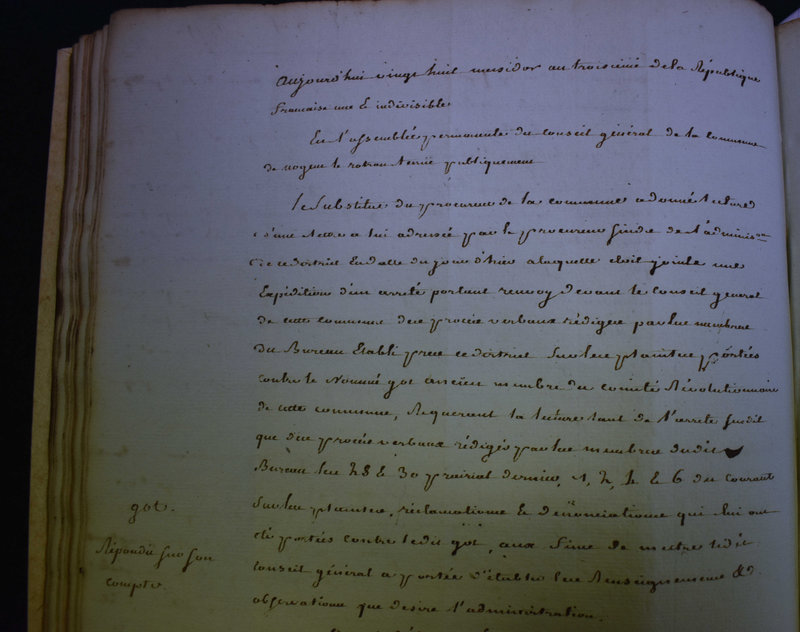 aujourd'hui vingt huit messidor an troisieme de la République
francaise une & indivisible
En l'assemblée permanente du conseil général de la commune
de nogent le rotrou tenüe publiquement
le substitut du procureur de la commune a donné lecture
d'une lettre a lui adressée par le procureur sindic de l'adminis.on
de ce district En datte du jour d'hier a laquelle étoit jointe une
Expédition d'un arrêté portant renvoy devant le conseil general
de cette commune des procès verbaux rédigés par les membres
du Bureau Etabli près ce district sur les plaintes portées
contre le nommé got ancien membre du comité Révolutionnaire
de cette commune, Requerant la lecture tant de l'arreté susdit
que des procès verbaux rédigés par les membres dudit
Bureau les 28 & 30 prairial dernier, 1, 2, 4 & 6 du courant
sur les plaintes, réclamations & dénonciations qui lui ont
été portées contre ledit got, aux fins de mettre ledit
conseil général a portée d'établir les Renseignements &
observations que desire l'administration.
got.
Répondu sur son
compte